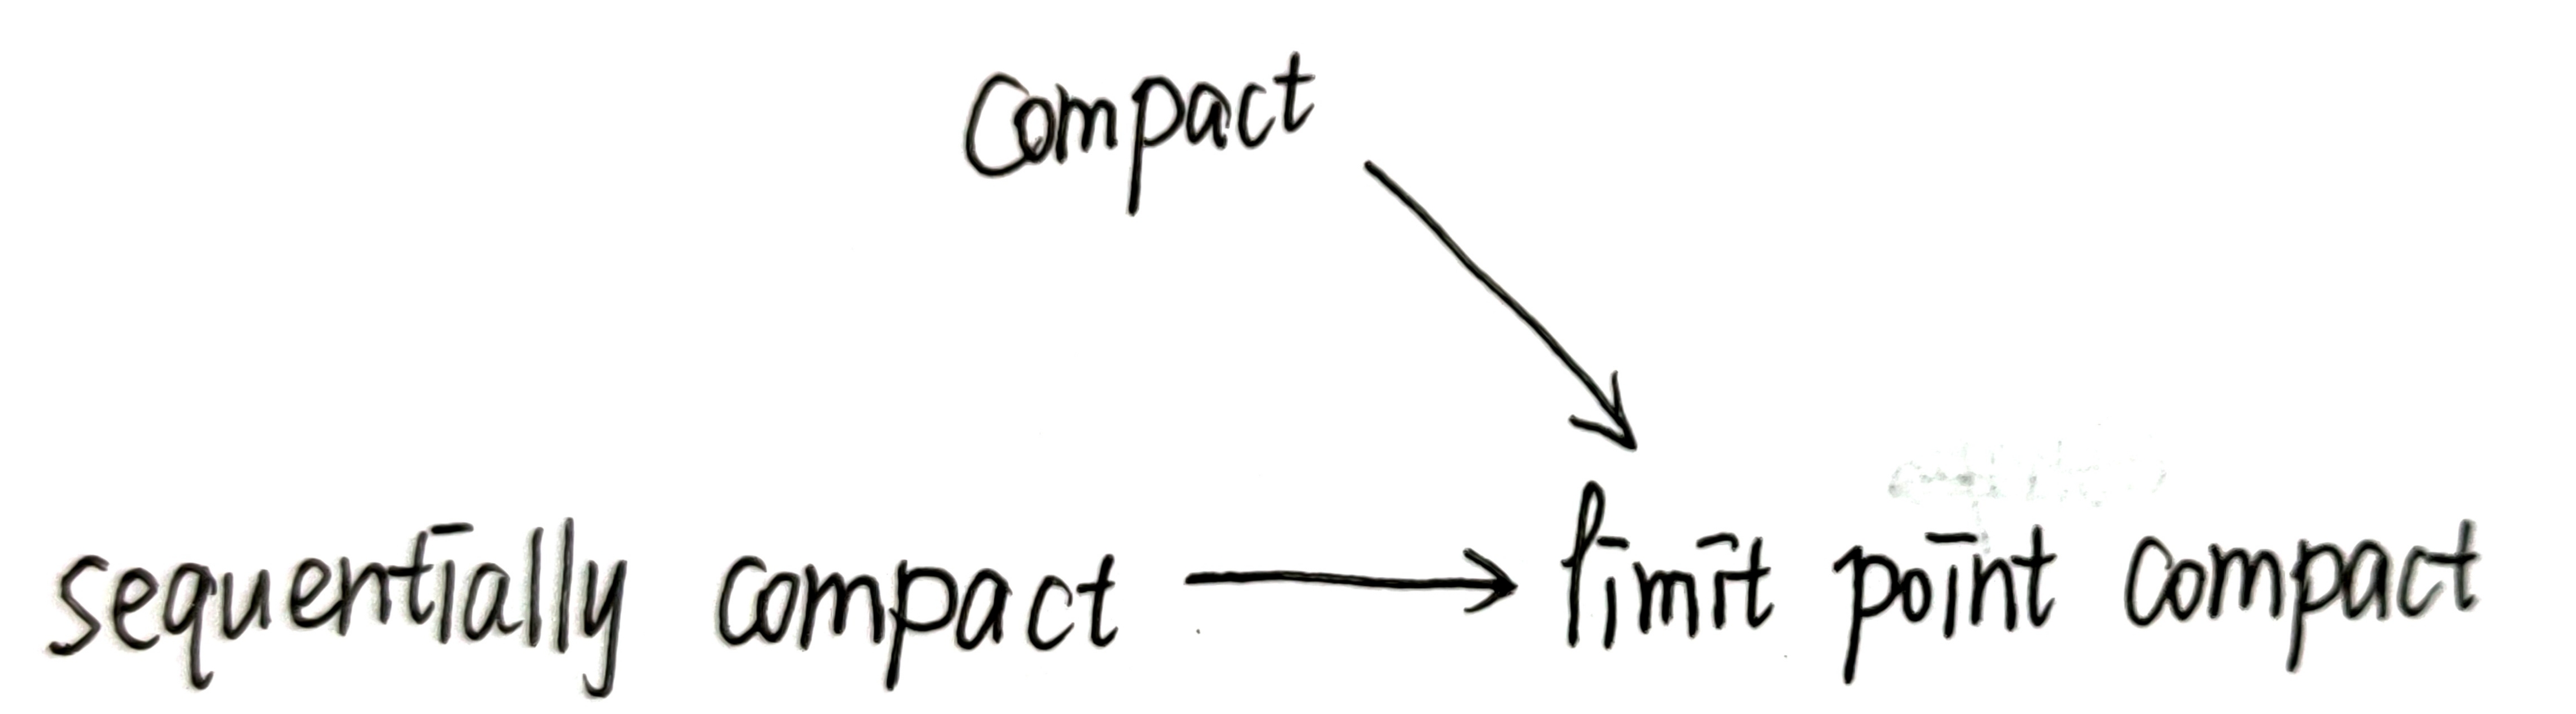 Compact
sequentially compact → limit point compact